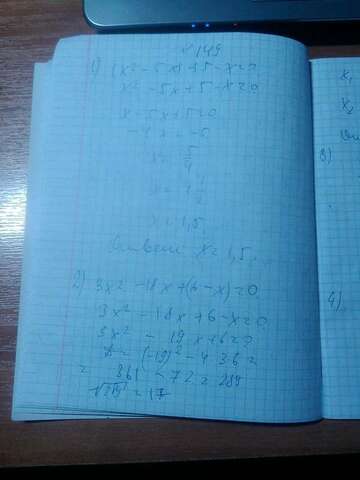 № 149
1) (x² - 5x) + 5 - x = 0
x² - 5x + 5 - x = 0
x - 5x + 5 = 0
-4x = -5
x = 5/4
x = 1
x = 1,5
Ответ: x = 1,5.
2) 3x² - 18x + (6 - x) = 0
3x² - 18x + 6 - x = 0
3x² - 19x + 6 = 0
= (-19)² - 4 3 6 =
= 361 - 72 = 289
= 17
x₁
x₂
3)
4)